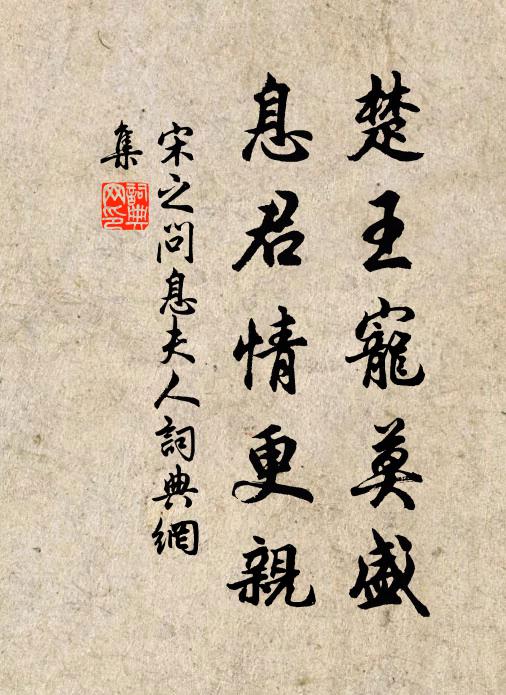 楚王寵莫盛
息君情更親
宋之問息夫人詞典網
集
詞典
网印